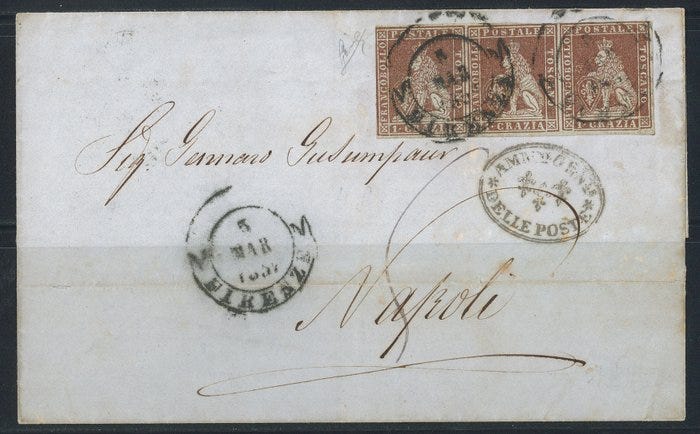 FRANCOBOLLO POSTALE TOSCANO 1 CRAZIA
FRANCOBOLLO POSTALE TOSCANO 1 CRAZIA
FRANCOBOLLO POSTALE TOSCANO 1 CRAZIA
MAR
FIRENZE
Sig Gennaro
DELLE POSTE
5
MAR
1857
FIRENZE
Napoli